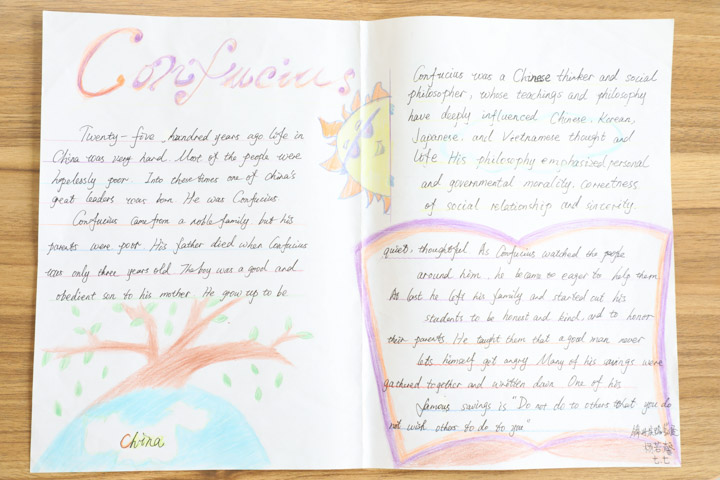 Confucius
Twenty-five hundred years ago life in
China was very hard. Most of the people were
hopelessly poor. Into these times one of China's
great leaders was born. He was Confucius.
Confucius came from a noble family but his
parents were poor. His father died when Confucius
was only three years old. The boy was a good and
obedient son to his mother. He grow up to be
China
Confucius was a Chinese thinker and social
philosopher, whose teachings and philosophy
have deeply influenced Chinese, Korean,
Japanese. and Vietnamese thought and
life His philosophy emphasized personal
and governmental morality, correctness
of social relationship and sincerity.
quiet, thoughtful. As Confucius watched the people
around him, he became eager to help them.
At last he left his family and started out his
students to be honest and kind, and to honor
their parents. He taught them that a good man never
lets himself get angry Many of his savings were
gathered together and written down One of his
famous savings is "Do not do to others that you do
not wish others to do to you"
七七